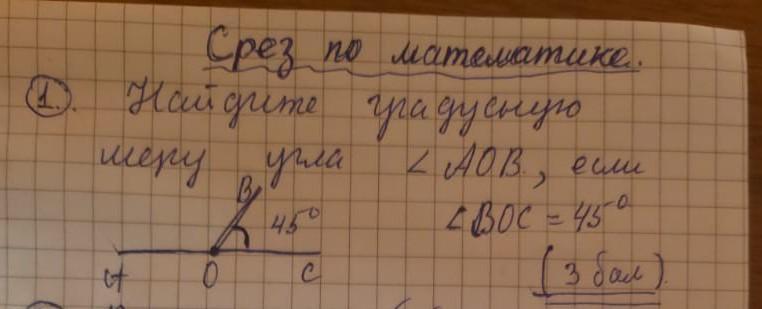 Срез по математике.
1. Найдите градусную
меру угла ∠AOB, если
B 45° ∠BOC = 45°
A O C (3 бал).